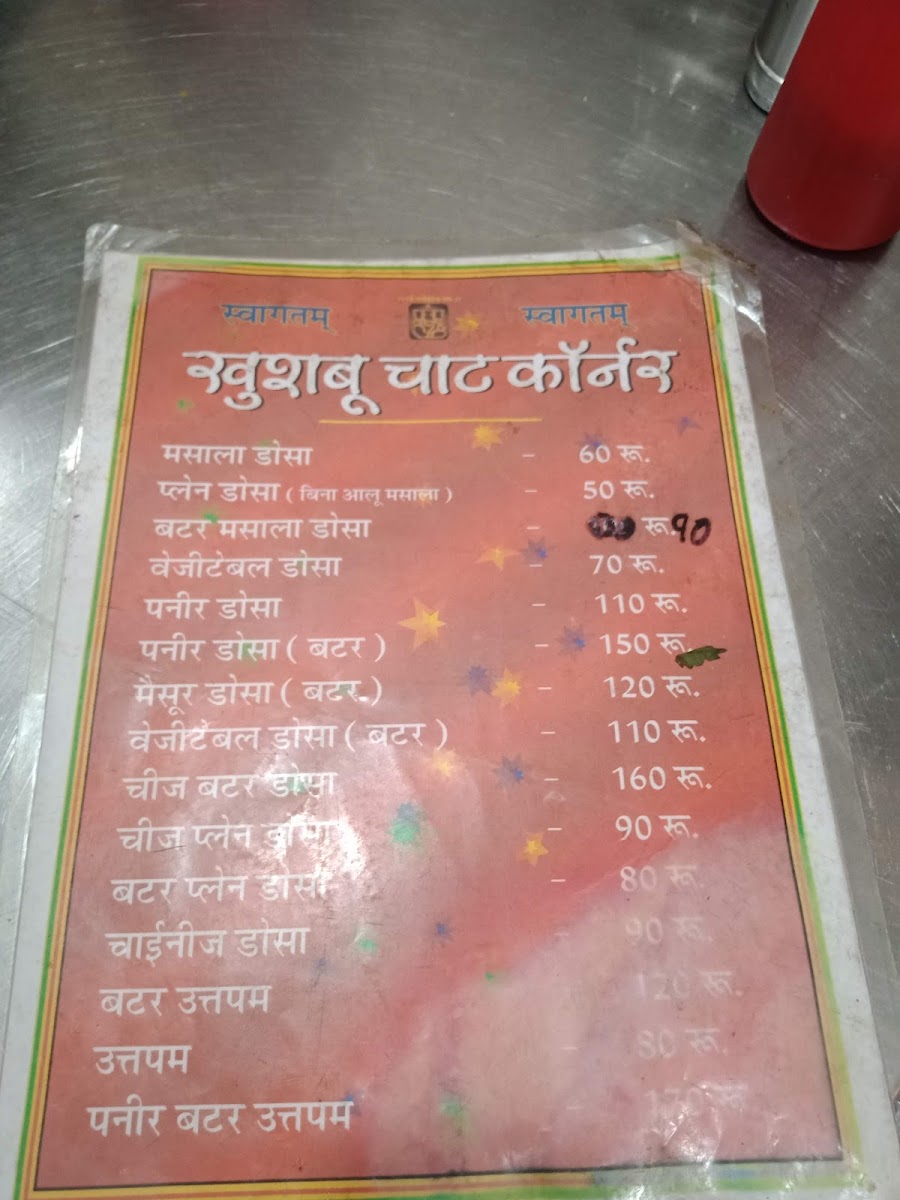 स्वागतम् स्वागतम्
खुशबू चाट कॉर्नर
मसाला डोसा - 60 रू.
प्लेन डोसा ( बिना आलू मसाला ) - 50 रू.
बटर मसाला डोसा - रू. 90
वेजीटेबल डोसा - 70 रू.
पनीर डोसा - 110 रू.
पनीर डोसा ( बटर ) - 150 रू.
मैसूर डोसा ( बटर ) - 120 रू.
वेजीटेबल डोसा ( बटर ) - 110 रू.
चीज बटर डोसा - 160 रू.
चीज प्लेन डोसा - 90 रू.
बटर प्लेन डोसा - 80 रू.
चाईनीज डोसा - 90 रू.
बटर उत्तपम - 120 रू.
उत्तपम - 80 रू.
पनीर बटर उत्तपम -